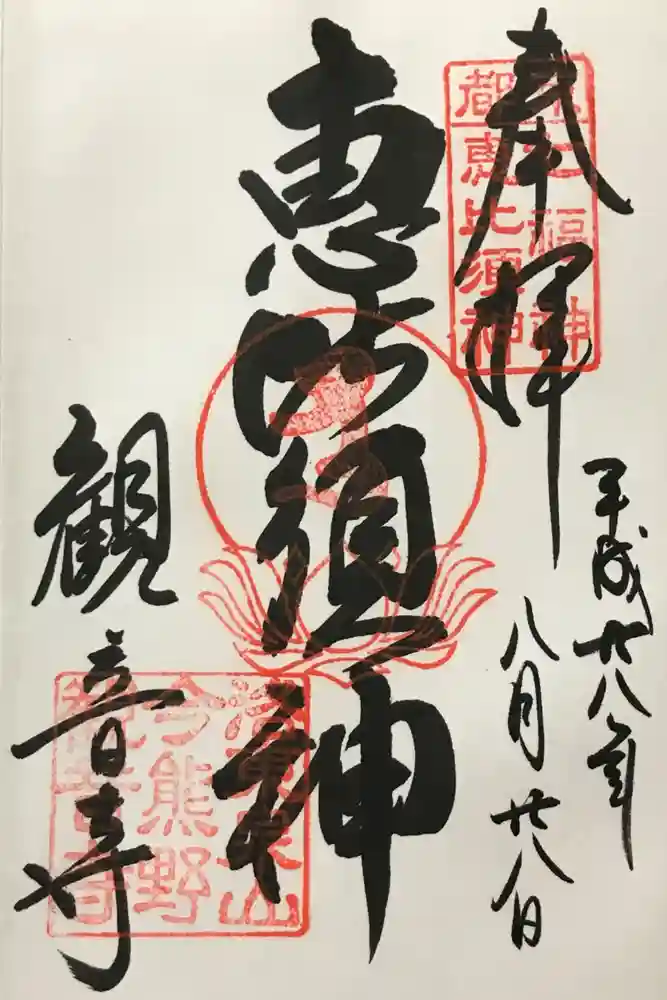 奉拝
平成廿八年
八月廿八日
都七福神
恵比須神
恵比須神
洛東泉山
今熊野
観音寺
観音寺